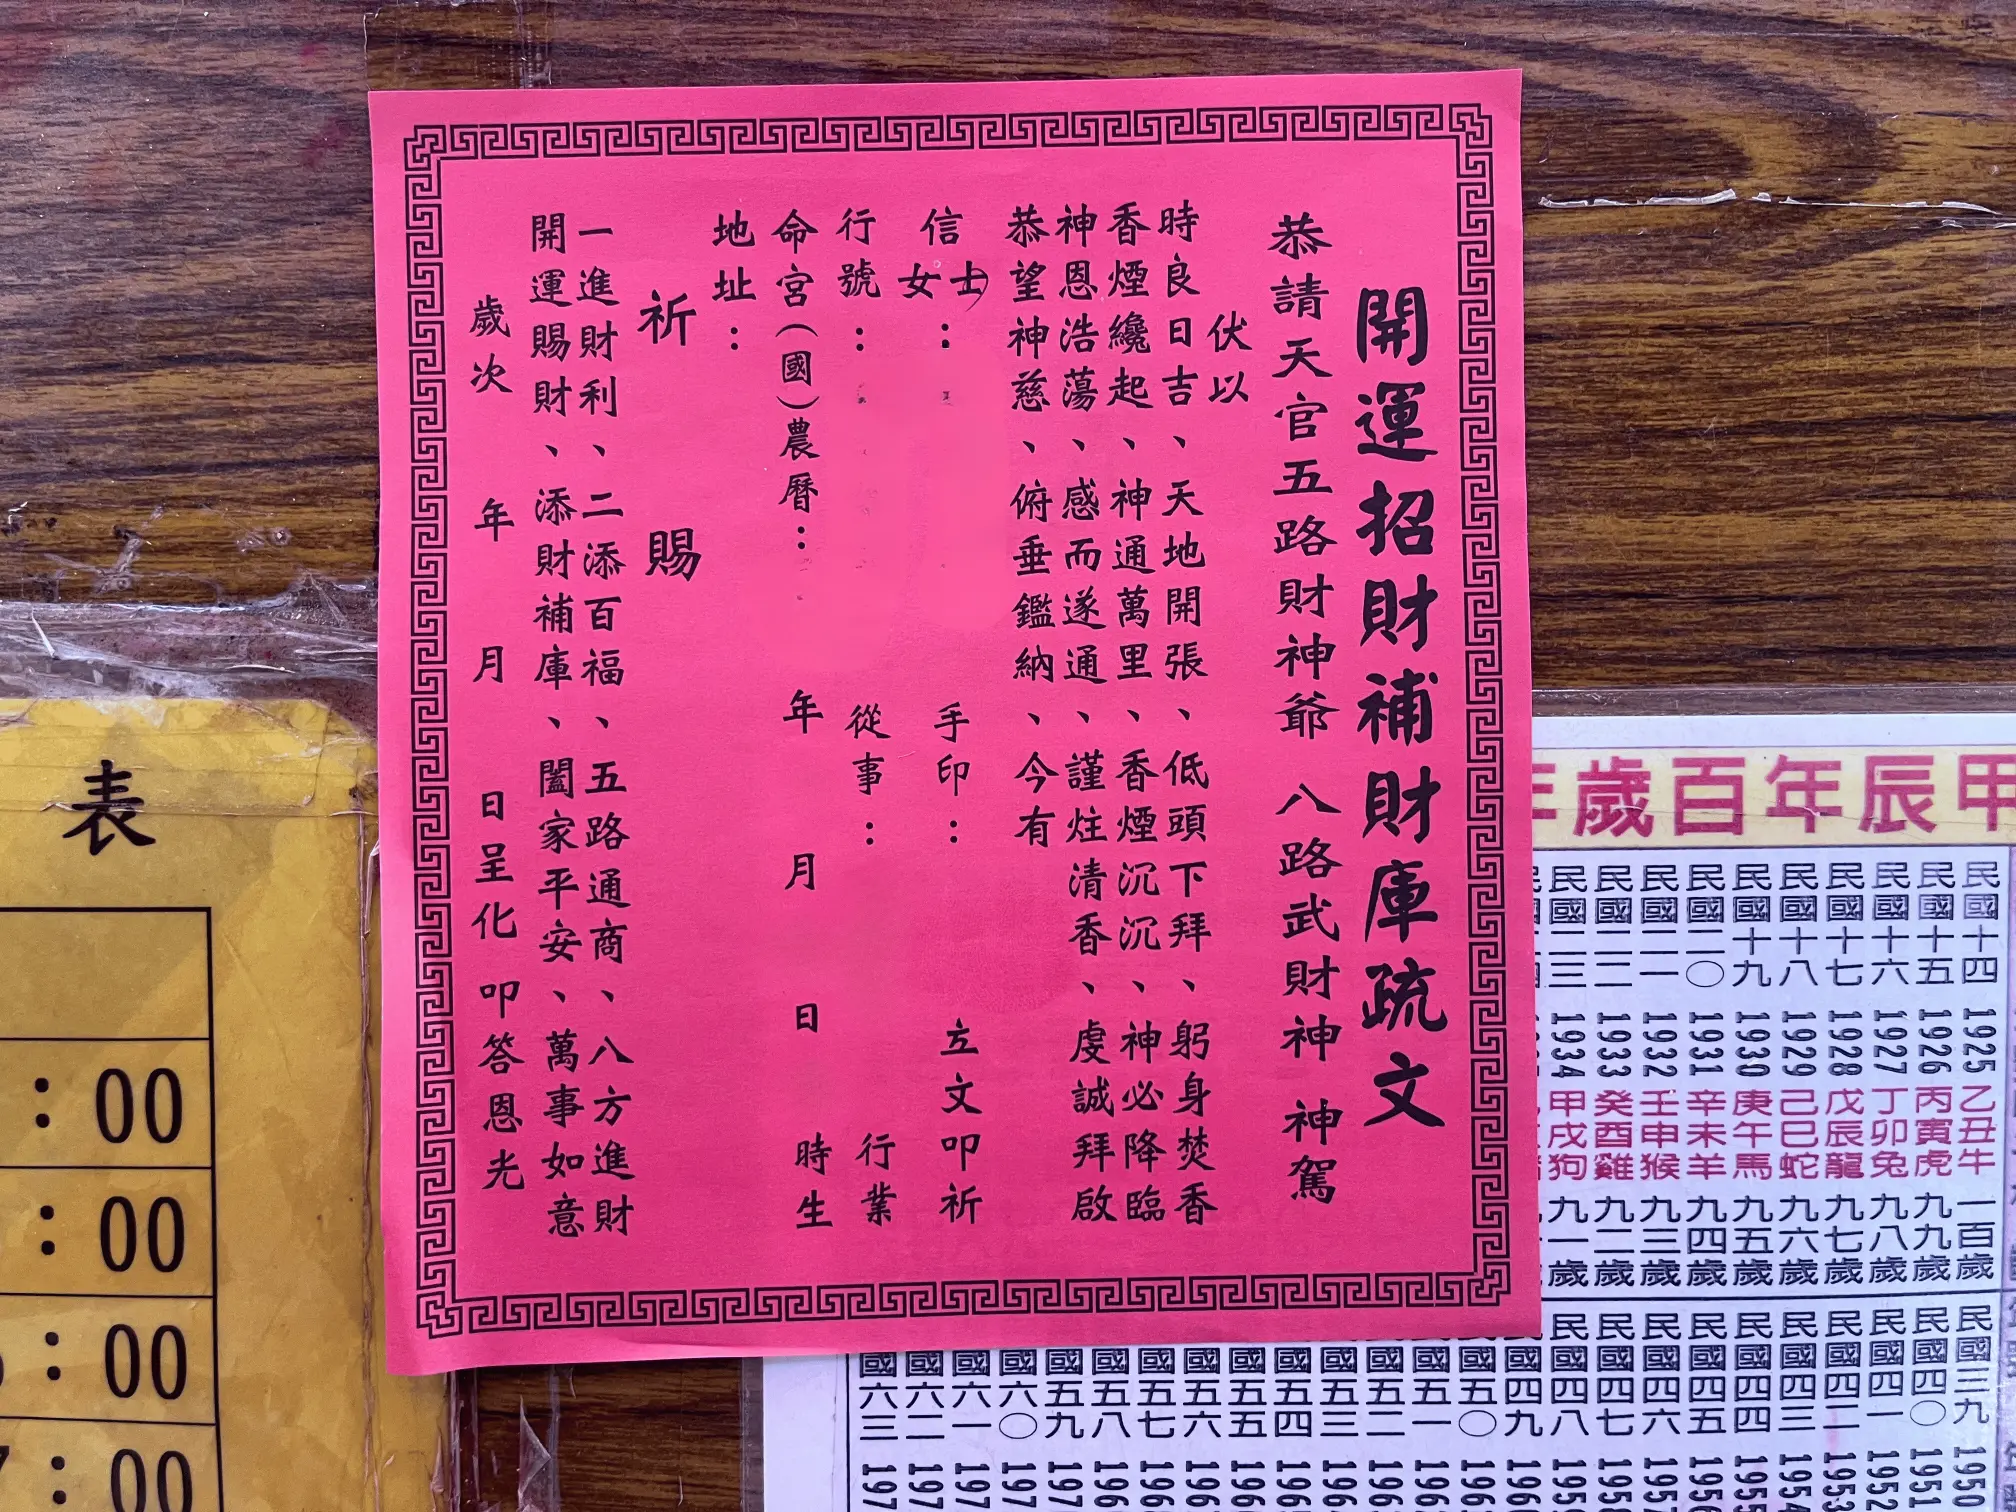 開運招財補財庫疏文
恭請天官五路財神爺 八路武財神 神駕
伏以
時良日吉、天地開張、低頭下拜、躬身焚香
香煙纔起、神通萬里、香煙沉沉、神必降臨
神恩浩蕩、感而遂通、謹炷清香、虔誠拜啟
恭望神慈、俯垂鑑納、今有
信士女： 手印： 立文叩祈
行號： 從事： 行業
命宮(國)農曆： 年 月 日 時生
地址：
祈 賜
一進財利、二添百福、五路通商、八方進財
開運賜財、添財補庫、闔家平安、萬事如意
歲次 年 月 日呈化叩答恩光
甲辰年百歲年
民國十四 1925 乙丑牛 一百歲
民國十五 1926 丙寅虎 九九歲
民國十六 1927 丁卯兔 九八歲
民國十七 1928 戊辰龍 九七歲
民國十八 1929 己巳蛇 九六歲
民國十九 1930 庚午馬 九五歲
民國二〇 1931 辛未羊 九四歲
民國二一 1932 壬申猴 九三歲
民國二二 1933 癸酉雞 九二歲
民國二三 1934 甲戌狗 九一歲
民國三九 195
民國四〇 195
民國四一 195
民國四二 195
民國四三 195
民國四四 195
民國四五 195
民國四六 195
民國四七 195
民國四八 195
民國四九 196
民國五〇 196
民國五一 196
民國五二 196
民國五三 196
民國五四 196
民國五五 196
民國五六 196
民國五七 196
民國五八 196
民國五九 197
民國六〇 197
民國六一 197
民國六二 197
民國六三 197
表
:00
:00
:00
:00